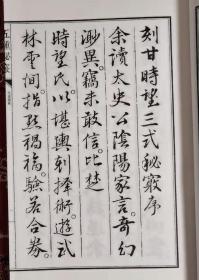 刻甘時望三式秘竅序
余讀太史公陰陽家言奇幻
渺異竊未敢信比楚
時望氏以堪輿剋擇術遊武
林雲間指點禍福驗若合券